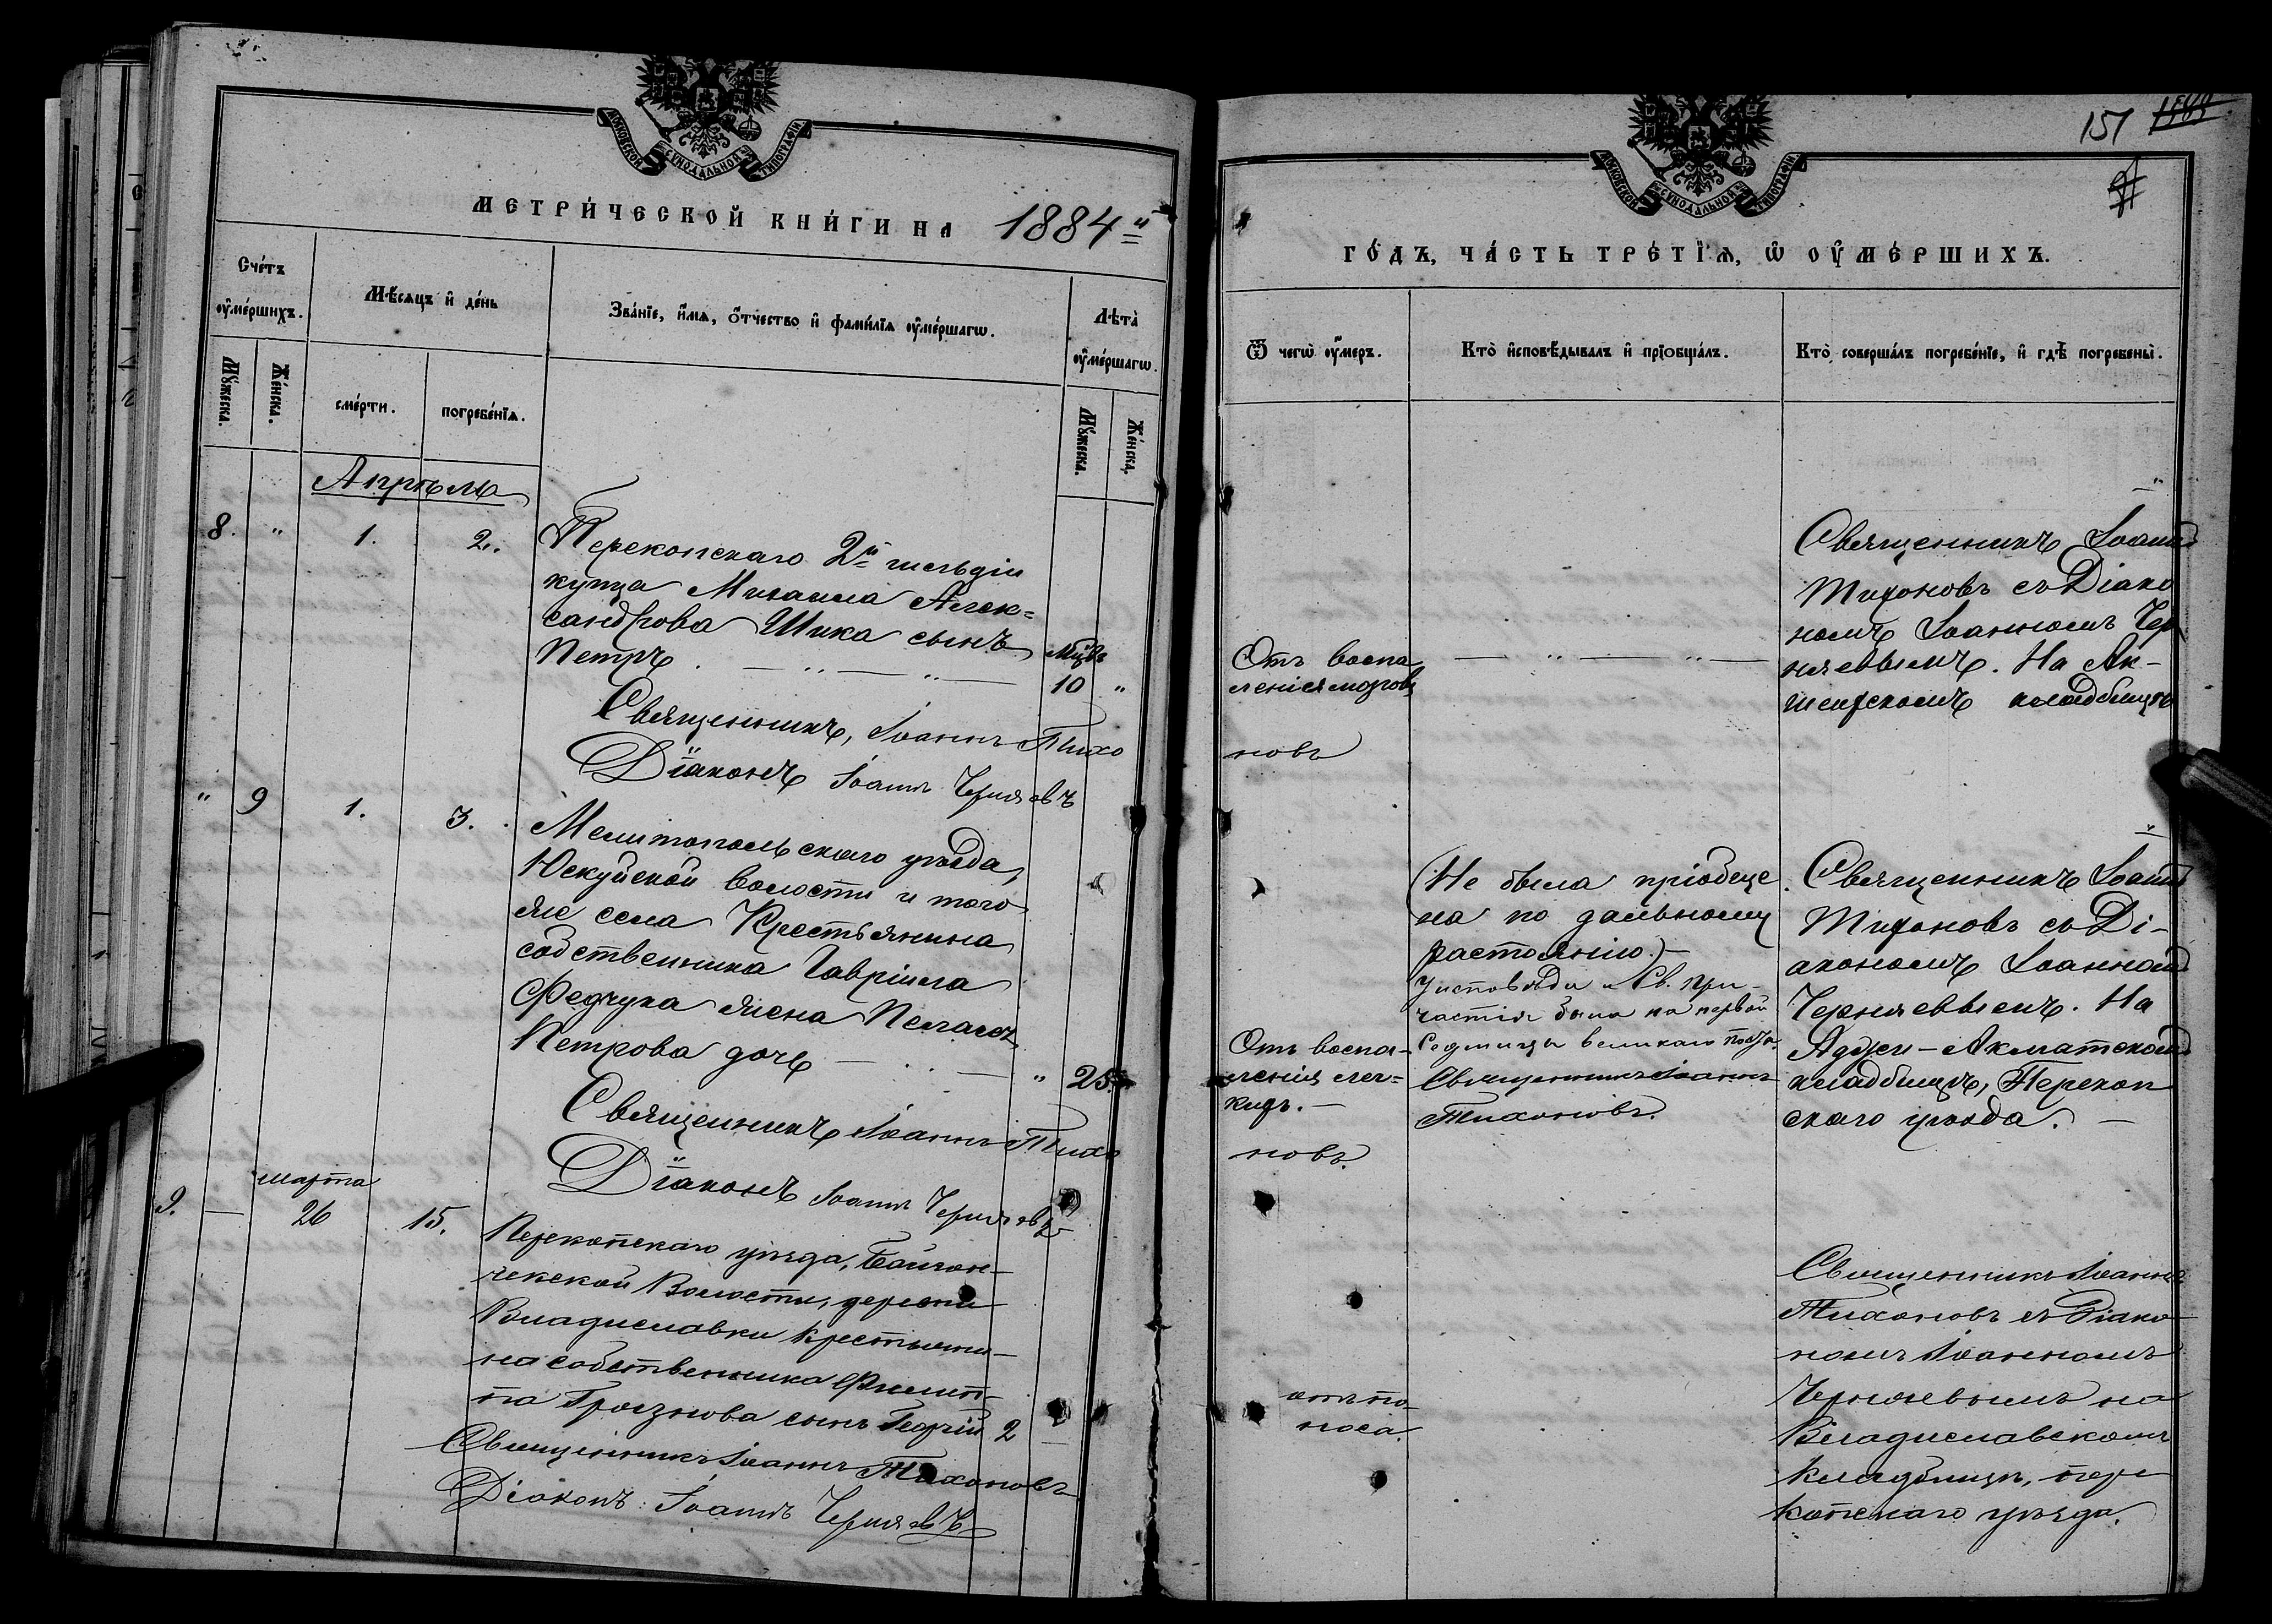 МОСКОВСКОЙ СѴНОДАЛЬНОЙ ТИПОГРАФІИ
МЕТРИ́ЧЕСКОЙ КНИ́ГИ НА 1884й
Сче́тъ ᲂу҆ме́ршихъ.
Мѣ́сяцъ и҆ де́нь
Зва́нїе, и҆́мѧ, ѻ҆́тчество и҆ фами́лїѧ ᲂу҆ме́ршагѡ.
Лѣта̀ ᲂу҆ме́ршагѡ.
Мꙋ́жеска.
Же́нска.
сме́рти.
погребе́нїѧ.
Мꙋ́жеска.
Же́нска.
Апрѣль
8. " 1. 2.
Перекопскаго 2й гильдіи
купца Михаила Алек=
сандрова Шика сынъ
Петръ. — " — " — мцвъ 10 "
Священникъ, Іоаннъ Тихо
Діаконъ Іоаннъ Черняевъ
" 9 1. 3.
Мелитопольскаго уѣзда,
Юскуйской волости и того
же села Крестьянина
собственника Гавріила
Федчука жена Пелагея
Петрова дочь — " 25.
Священникъ Іоаннъ Тихо
Діаконъ Іоаннъ Черняевъ
9. — марта 26 15.
Перекопскаго уѣзда, Байгон-
чекской Волости, деревни
Владиславки крестьяни-
на собственника Филип-
па Грознова сынъ Георгій 2 —
Священникъ Іоаннъ Тихоновъ
Діаконъ Іоаннъ Черняевъ
151
МОСКОВСКОЙ СѴНОДАЛЬНОЙ ТИПОГРАФІИ
ГО́ДЪ, ЧА́СТЬ ТРЕ́ТЇѦ, Ѡ҆ ОУ҆МЕ́РШИХЪ.
Ѿ чегѡ̀ ᲂу҆́меръ.
Кто̀ и҆сповѣ́дывалъ и҆ прїѻбща́лъ.
Кто̀ соверша́лъ погребе́нїе, и҆ гдѣ̀ погребены̀.
Отъ воспа
ленія мозговъ
— " — " —
Священникъ Іоаннъ
Тихоновъ съ Діако
номъ Іоанномъ Чер
няевымъ. На Ак-
шеихскомъ кладбищѣ
новъ
Отъ воспа-
ленія лег=
кихъ. —
(Не была пріобще
на по дальному
растоянію) —
У исповѣди и Св. при-
частія была на первой
Седмицы великаго поста.
Священникъ Іоаннъ
Тихоновъ.
Священникъ Іоаннъ
Тихоновъ съ Ді-
акономъ Іоанномъ
Черняевымъ. На
Аджи-Акматскомъ
кладбищѣ, Перекоп
скаго уѣзда. —
новъ.
отъ по-
носа.
Священникъ Іоаннъ
Тихоновъ съ Діако
номъ Іоанномъ
Черняевымъ на
Владиславскомъ
кладбищѣ, пере
копскаго уѣзда.